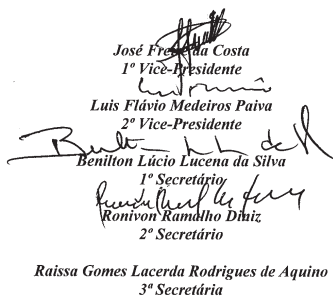 José Freire da Costa
1º Vice-Presidente
Luis Flávio Medeiros Paiva
2º Vice-Presidente
Benilton Lúcio Lucena da Silva
1º Secretário
Ronivon Ramalho Diniz
2º Secretário
Raissa Gomes Lacerda Rodrigues de Aquino
3ª Secretária